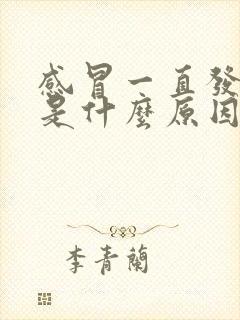 感冒一直發
是什麼原因
李青蘭